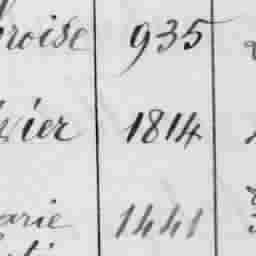 roise 935
vier 1814
arie 1441